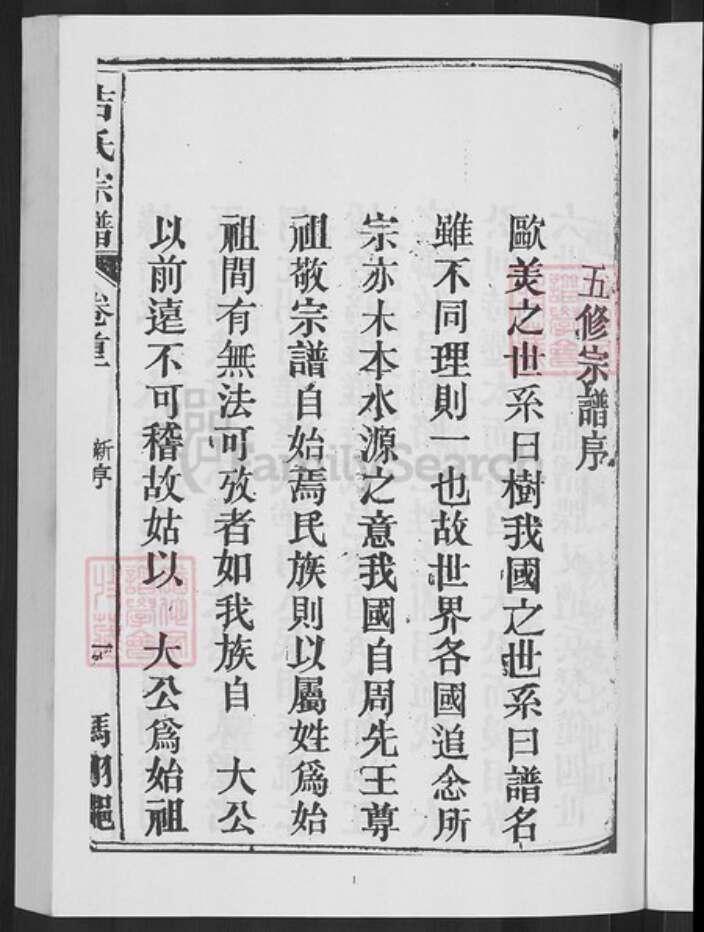 五修宗譜序
歐美之世系曰樹我國之世系曰譜名
雖不同理則一也故世界各國追念所
宗亦木本水源之意我國自周先王尊
祖敬宗譜自始焉民族則以屬姓爲始
祖間有無法可攷者如我族自 大公
以前遠不可稽故姑以 大公爲始祖
吉氏宗譜 卷首 新序 一 馮翊題
FamilySearch
1